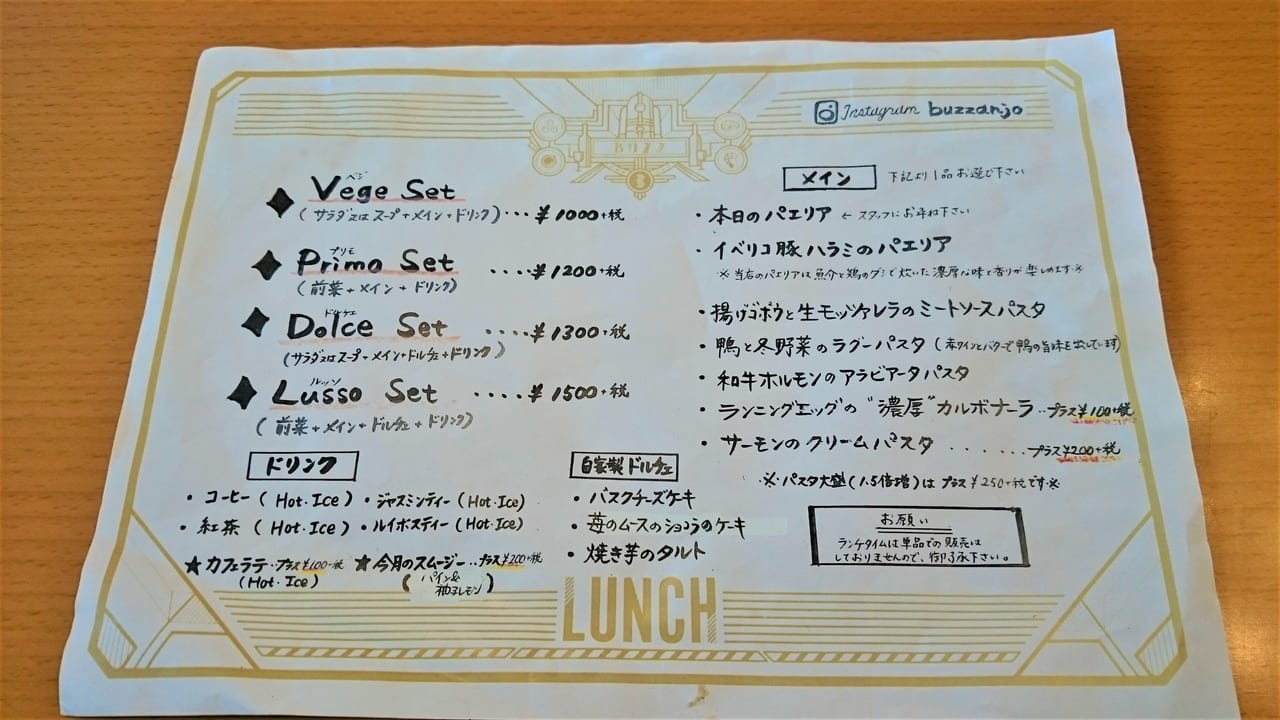 Instagram buzzanjo
BUZZ
ベジ
◆ Vege Set
(サラダ又はスープ+メイン+ドリンク)・・・¥1000+税
プリモ
◆ Primo Set ・・・・¥1200+税
(前菜+メイン+ドリンク)
ドルチェ
◆ Dolce Set ・・・・・¥1300+税
(サラダ又はスープ+メイン+ドルチェ+ドリンク)
ルッソ
◆ Lusso Set ・・・・・¥1500+税
(前菜+メイン+ドルチェ+ドリンク)
メイン 下記より1品お選び下さい
・本日のパエリア ← スタッフにお尋ね下さい
・イベリコ豚ハラミのパエリア
※当店のパエリアは魚介と鶏のダシで炊いた濃厚な味と香りが楽しめます※
・揚げゴボウと生モッツァレラのミートソースパスタ
・鴨と冬野菜のラグーパスタ(赤ワインとバターで鴨の旨味を出しています)
・和牛ホルモンのアラビアータパスタ
・ランニングエッグの"濃厚"カルボナーラ・・プラス¥100+税
・サーモンのクリームパスタ・・・・・・プラス¥200+税
※パスタ大盛(1.5倍増)はプラス¥250+税です※
ドリンク
・コーヒー(Hot・Ice) ・ジャスミンティー(Hot・Ice)
・紅茶(Hot・Ice) ・ルイボスティー(Hot・Ice)
★カフェラテ・・プラス¥100+税 ★今月のスムージー・・プラス¥200+税
(Hot・Ice) (パイン&
柚子レモン)
自家製ドルチェ
・バスクチーズケーキ
・苺のムースのショコラのケーキ
・焼き芋のタルト
お願い
ランチタイムは単品での販売は
しておりませんので、御了承下さい。
LUNCH